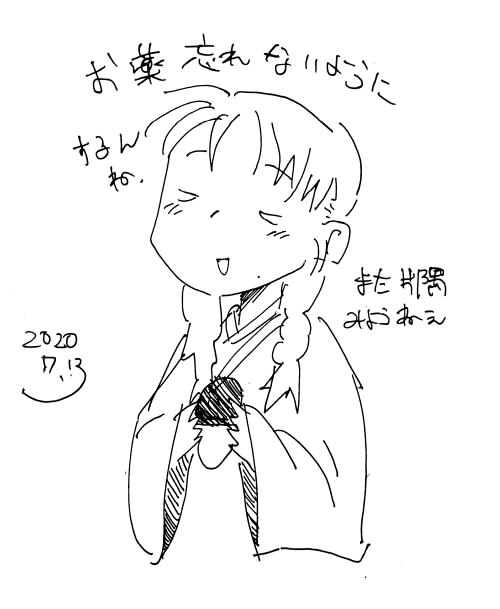 お薬忘れないように
するん
ね、
また片隅
みようねェ
2020
7.13